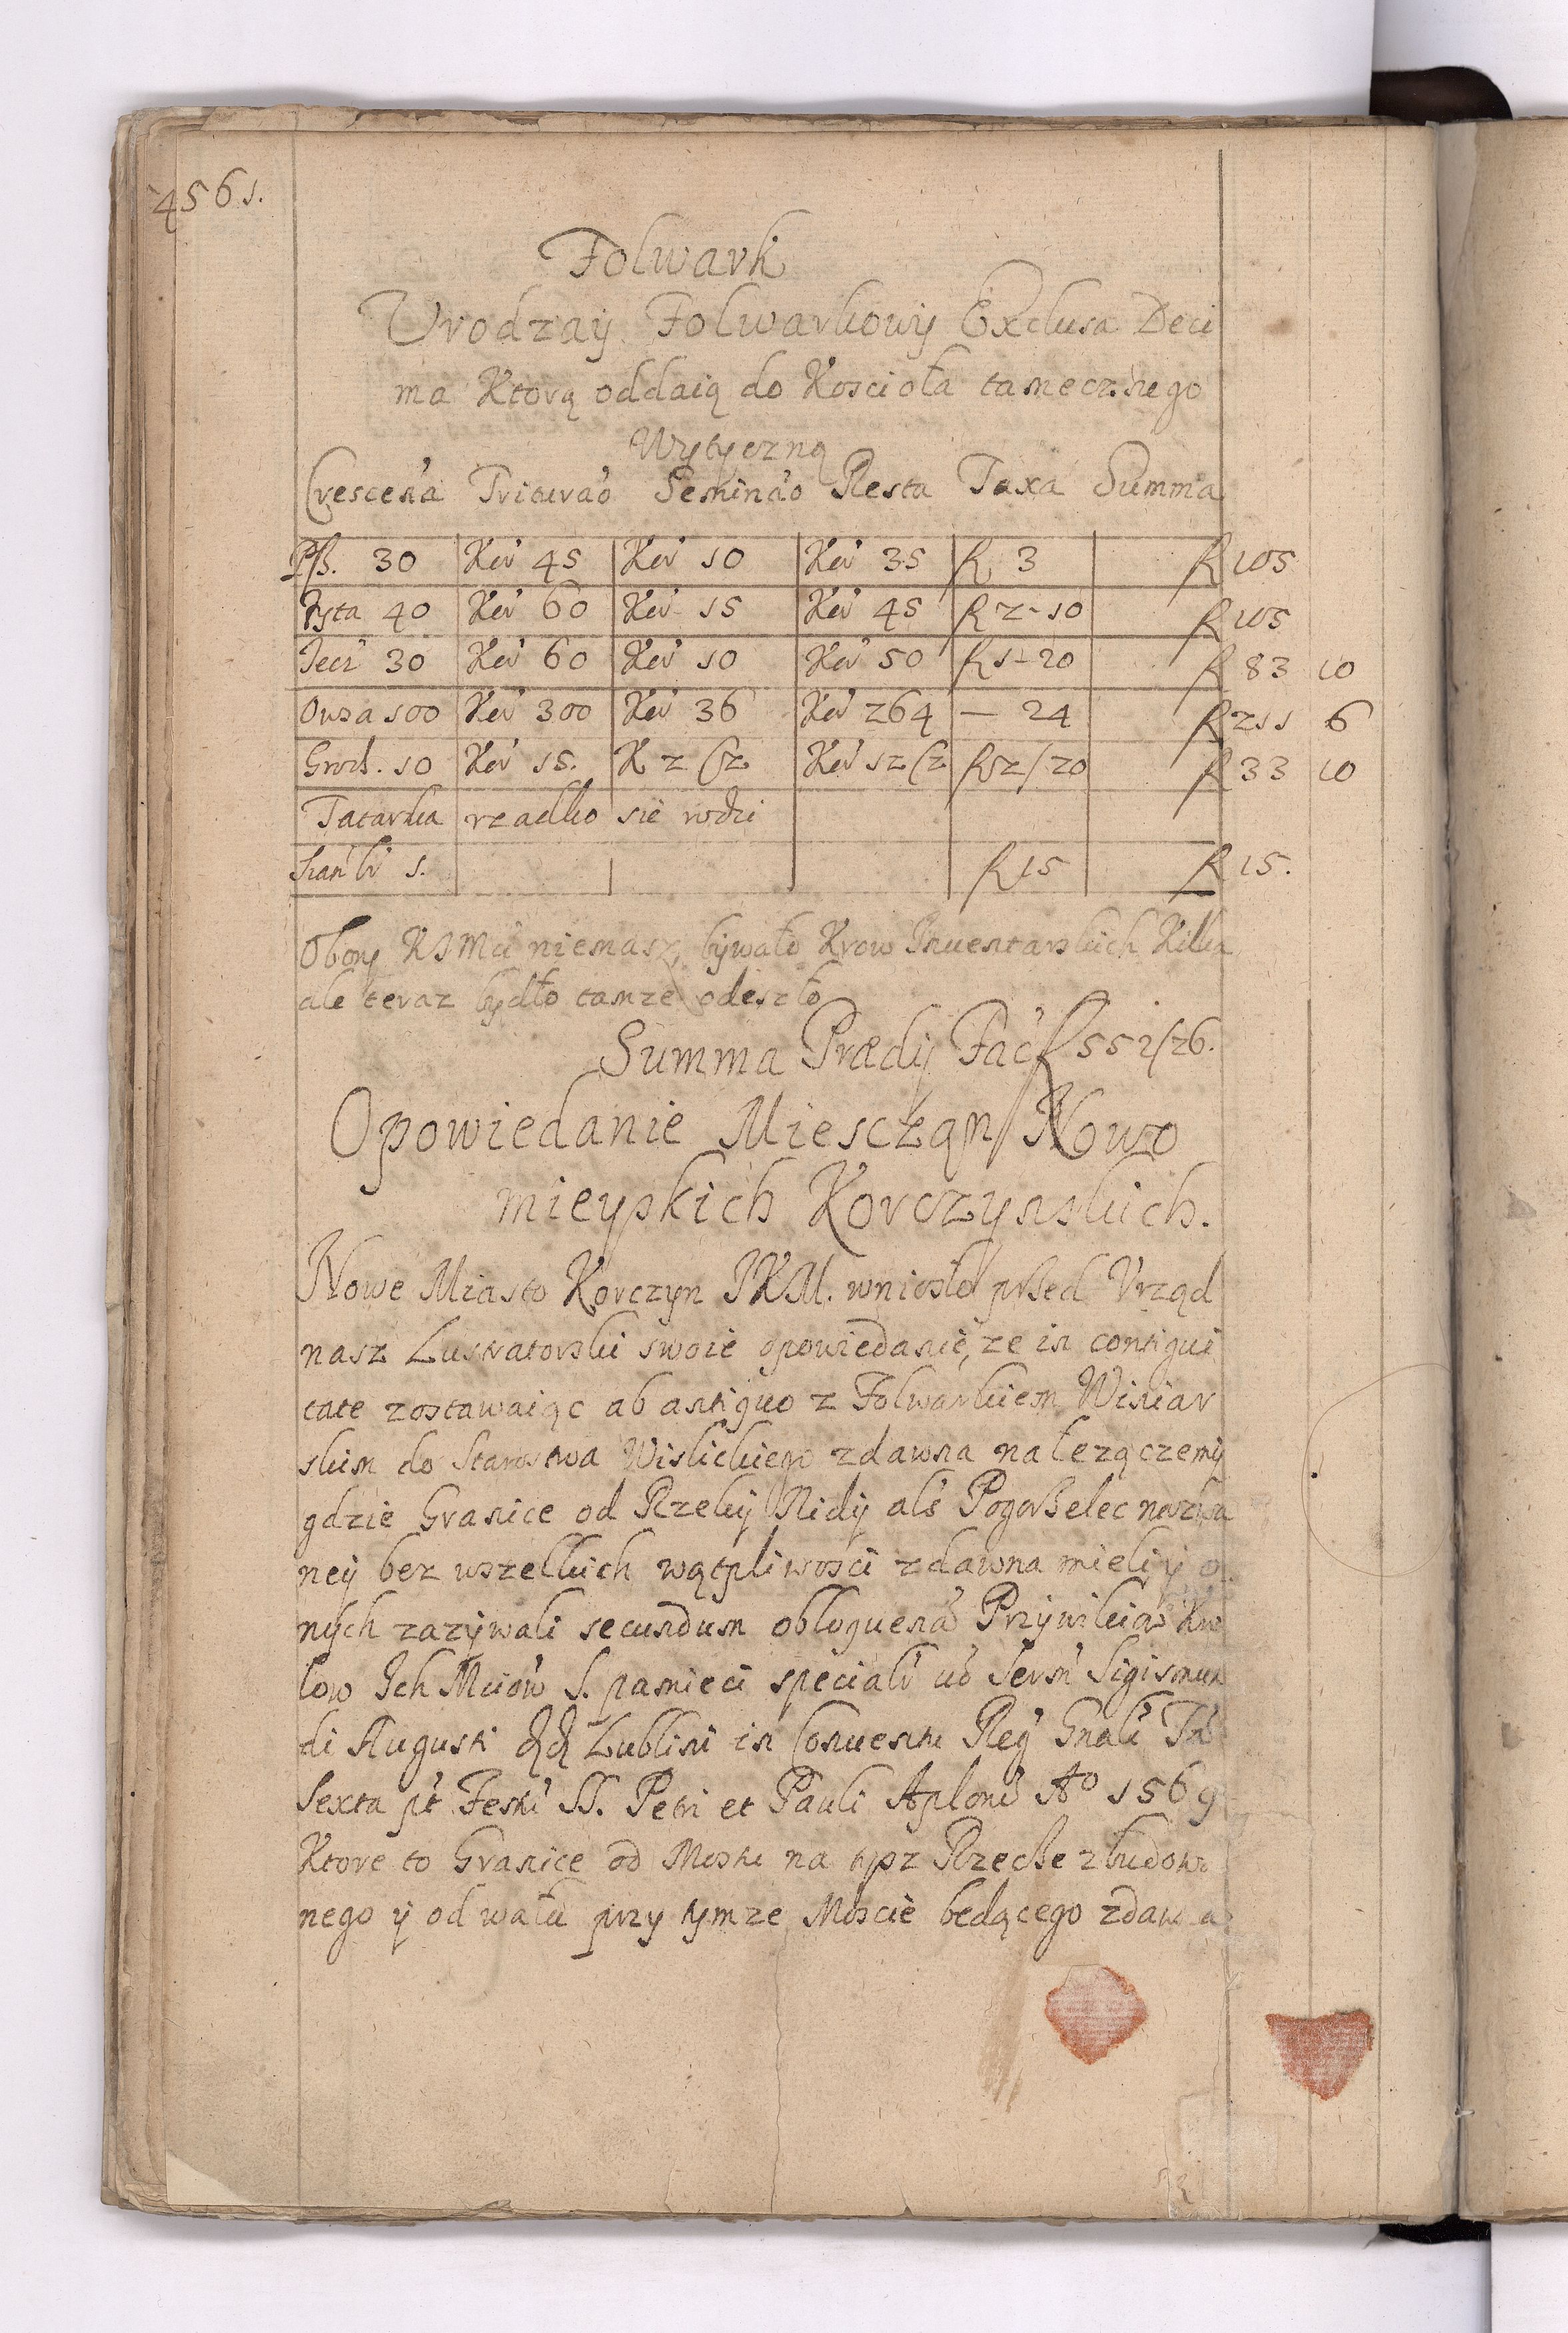 4561.
Folwark
Urodzaÿ Folwarkowÿ Exclusa Deci
ma Ktorą oddaią do Koscioła tamecznego
Wytyczną
Crescen'a Triturao' Seminao' Resta Taxa Summa
Psz. 30 Kor' 45 Kor' 10 Kor' 35 fl 3 fl 105
Żyta 40 Kor' 60 Kor' 15 Kor' 45 fl 2-10 fl 105
Jecz' 30 Kor' 60 Kor' 10 Kor' 50 fl 1-20 fl 83 10
Owsa 100 Kor' 300 Kor' 36 Kor' 264 — 24 fl 211 6
Groch. 10 Kor' 15. K 2 (2 Kor' 12 (2 fl 2/20 fl 33 10
Tatarka rzadko sie rodzi
1. fl 15 fl 15.
Obory KJMci niemasz, bywało Krow Inuentarskich Kilka
ale teraz bydło tamze odeszło
Summa Prædij Fac' fl 552/26.
Opowiedanie Miescząn Nowo
mieyskich Korczynskich.
Nowe Miasto Korczyn JKM. wniosło przed Vrząd
nasz Lustratorski swoie opowiedanie, ze in contigui
tate zostawaiąc ab antiquo z Folwarkiem Winiar
skim do Starostwa Wislickiego zdawna nalezączemÿ
gdzie Granice od Rzekÿ Nidÿ als Pogorzelec nazwa
neÿ bez wszelkich wątpliwosci zdawna mieli ÿ o
nÿch zazÿwali secundum obloquena' Przÿwileiow Kro
low Ich Mciow S. pamieci speciali' uo' Serm' Sigismun
di Augusti Lublini in Conuentu Reg' Gnali' Fa'
Sexta pt' Festu' SS. Petri et Pauli Aploru' Ao 1569
Ktore to Granice od Mostu na tÿsz Rzecze zbudowa
nego ÿ od wału przy tymze Moscie bedącego zdawna